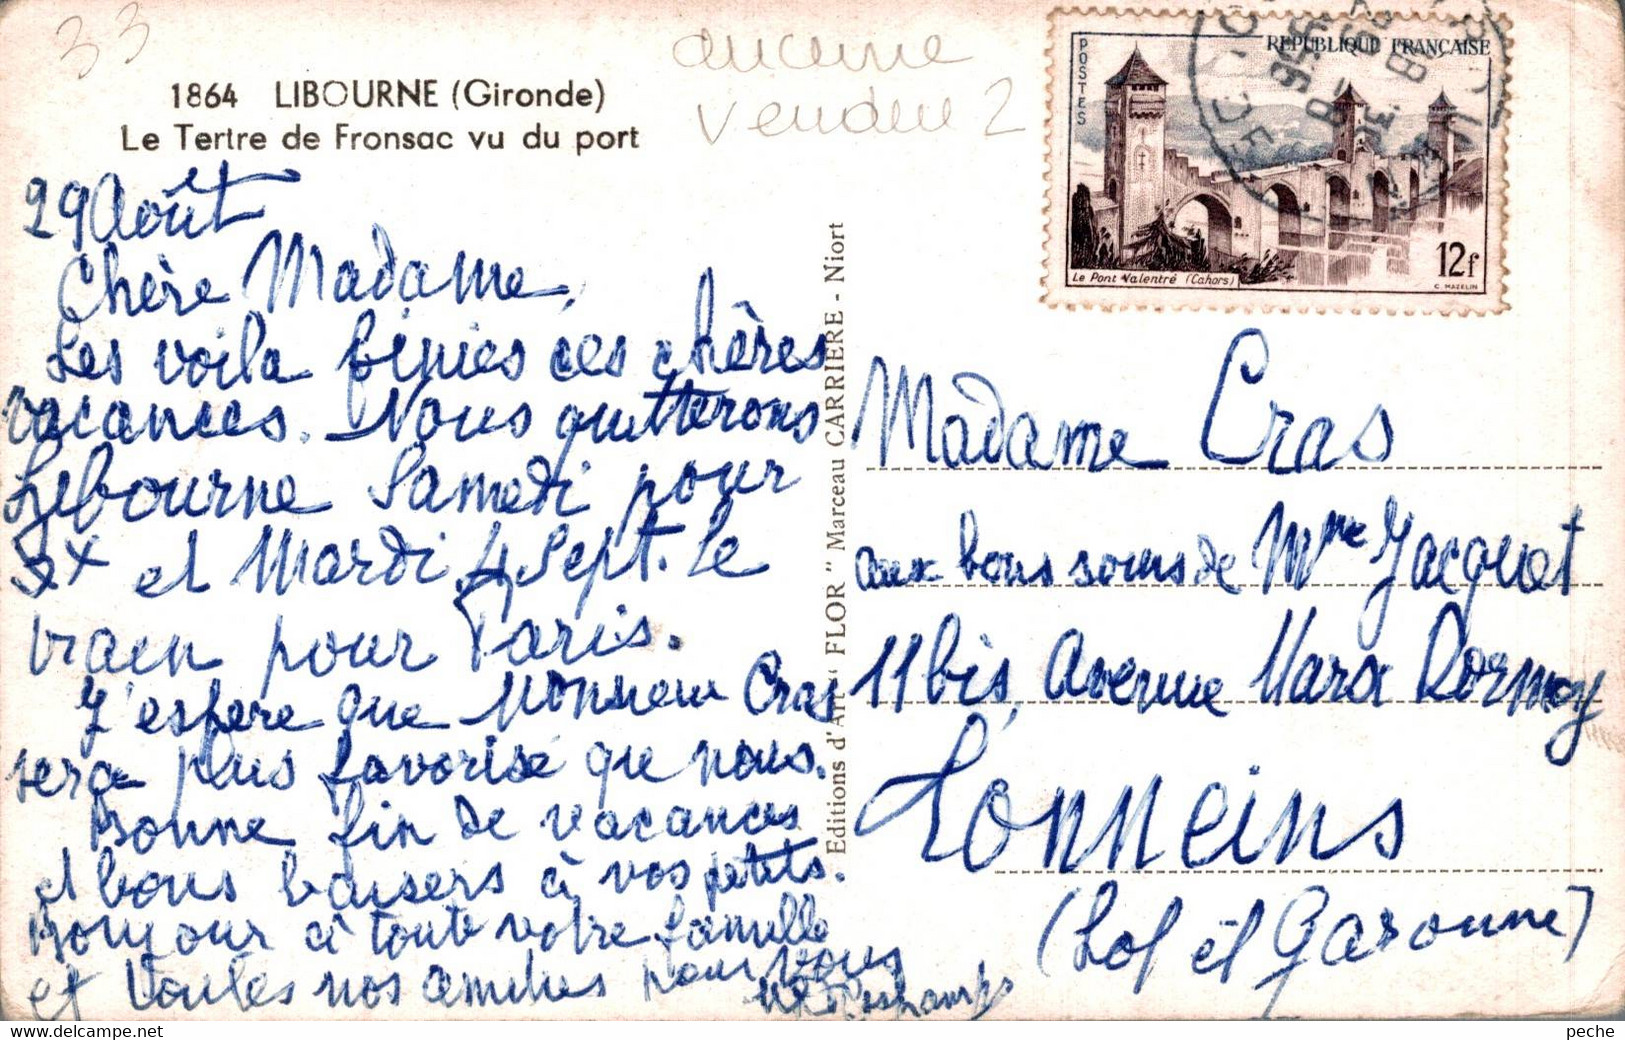 33
aucune
vendue 2
1864 LIBOURNE (Gironde)
Le Tertre de Fronsac vu du port
29 Août
Chère Madame,
Les voila finies ces chères
vacances. Nous quitterons
Libourne Samedi pour
Bx et Mardi 4 Sept. le
train pour Paris.
J'espère que Monsieur Cras
sera plus favorisé que nous.
Bonne fin de vacances
et bons baisers à vos petits.
Bonjour à toute votre famille
et toutes nos amitiés pour vous
Deschamps
Editions d'Art " FLOR " Marceau CARRIERE - Niort
POSTES
REPUBLIQUE FRANÇAISE
12f
Le Pont Valentré (Cahors)
C. MAZELIN
Madame Cras
aux bons soins de Mme Jacquet
11 bis, Avenue Marx Dormoy
Tonneins
(Lot et Garonne)
peche